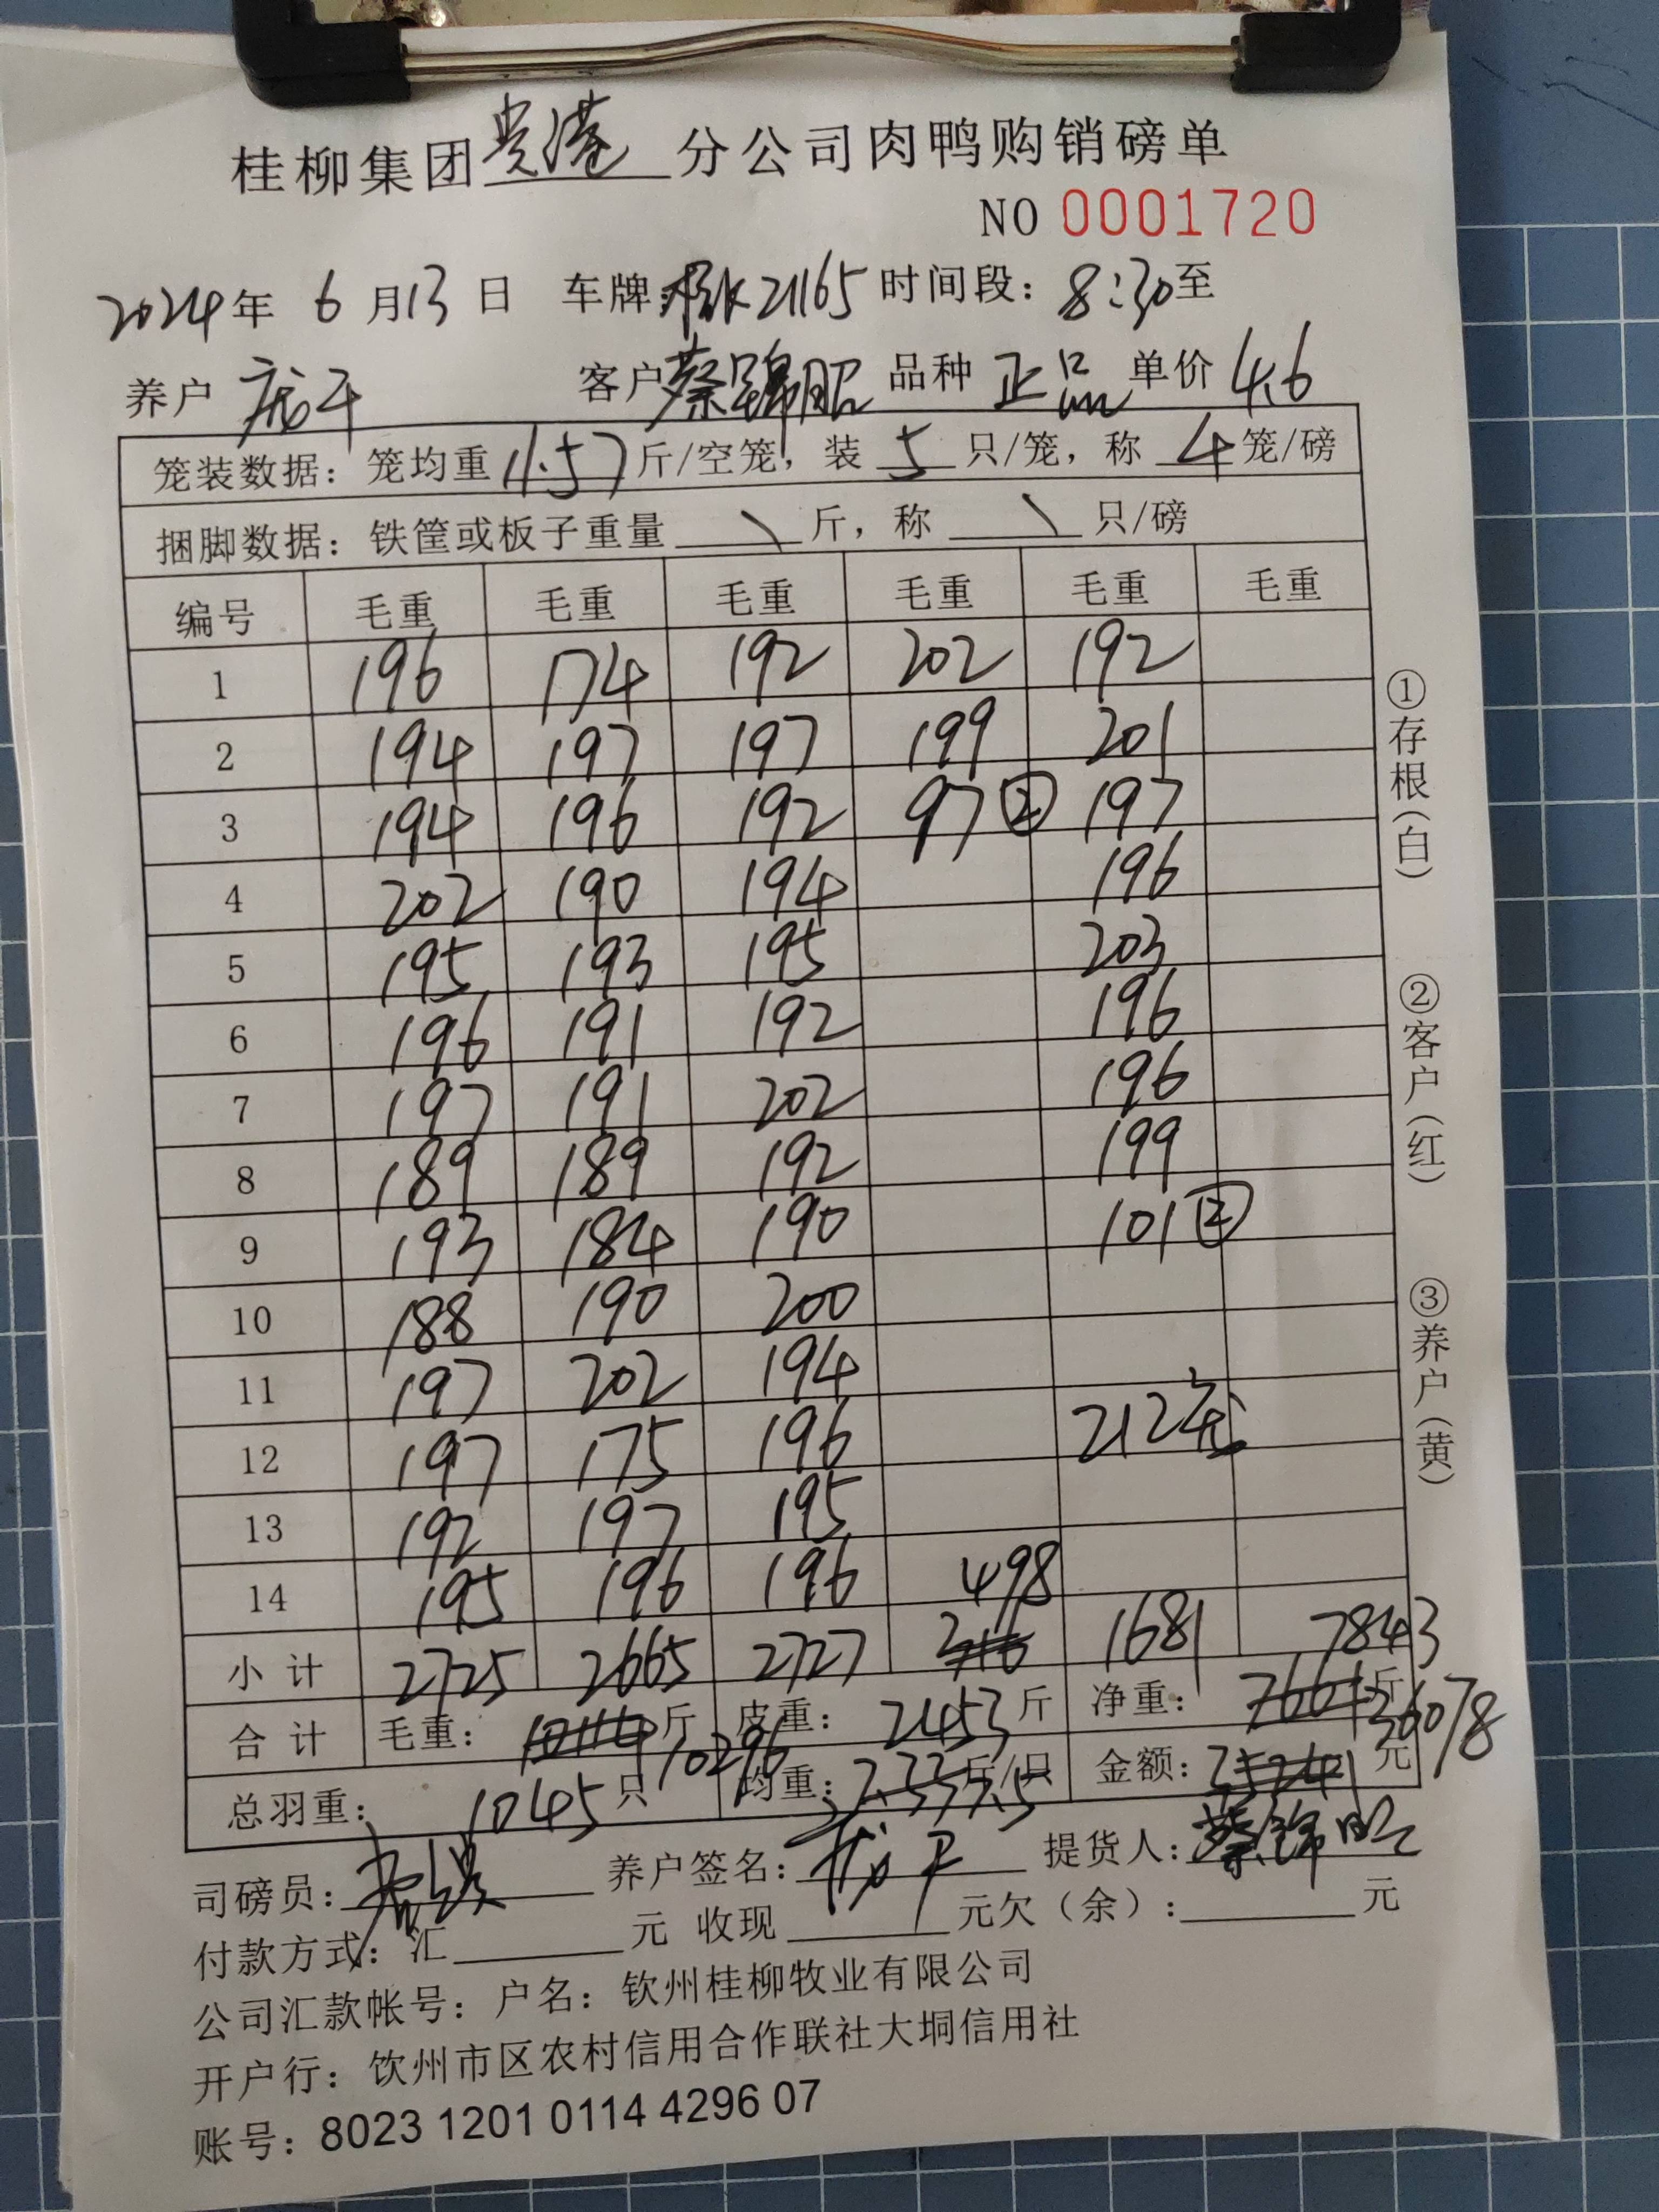 桂柳集团贵港分公司肉鸭购销磅单
NO 0001720
2024年 6月13日 车牌:21165 时间段: 8:30至
养户 庞平 客户 蔡锦昭 品种 正品 单价 4.6
笼装数据: 笼均重 11.57 斤/空笼, 装 5 只/笼, 称 4 笼/磅
捆脚数据: 铁筐或板子重量 \ 斤, 称 \ 只/磅
编号 毛重 毛重 毛重 毛重 毛重 毛重
1 196 174 192 202 192
2 194 197 197 199 201
3 194 196 192 97② 197
4 202 190 194 196
5 195 193 195 203
6 196 191 192 196
7 197 191 202 196
8 189 189 192 199
9 193 184 190 101②
10 188 190 200
11 197 202 194
12 197 175 196 212笼
13 192 197 195
14 195 196 196 498
小计 2725 2665 2727 1681 7843
合计 毛重: 斤 10296 皮重: 2453斤 净重: 斤 36078
总羽重: 1045只 均重: 7.5 斤/只 金额: 元
司磅员: 养户签名: 庞平 提货人: 蔡锦昭
付款方式: 汇 元 收现 元欠(余): 元
公司汇款帐号: 户名: 钦州桂柳牧业有限公司
开户行: 钦州市区农村信用合作联社大垌信用社
账号: 8023 1201 0114 4296 07
①存根(白)
②客户(红)
③养户(黄)